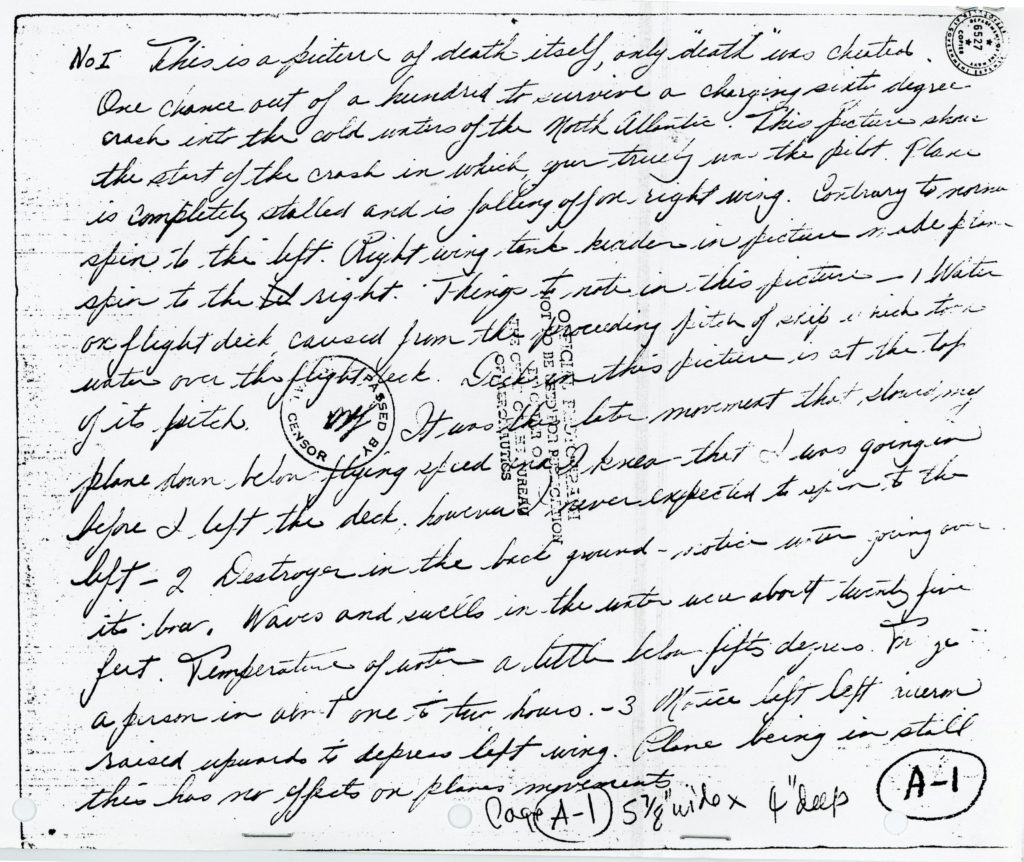 No I This is a picture of death itself, only "death" was cheated.
One chance out of a hundred to survive a charging sixty degree
crash into the cold waters of the North Atlantic. This picture show
the start of the crash in which your truely was the pilot. Plane
is completely stalled and is falling off on right wing. Contrary to norma
spin to the left. Right wing tank in picture made plane
spin to the right. Things to note in this picture — 1 Water
on flight deck caused from the preceeding pitch of ship which
water over the flight deck. Deck in this picture is at the top
of its pitch. It was the later movement that slowed my
plane down below flying speed and I knew that I was going in
before I left the deck, however never expected to spin to the
left — 2 Destroyer in the back ground — notice water going over
its bow. Waves and swells in the water were about twenty five
feet. Temperature of water a little below fifty degrees.
a person in about one to two hours. — 3 Notice left left
raised upwards to depress left wing. Plane being in stall
this has no effects on planes movements
Page A-1 5 7/8" wide x 4" deep
A-1
PASSED BY
CENSOR
OFFICIAL PHOTOGRAPH
NOT TO BE USED FOR PUBLICATION
BY ORDER OF
THE CHIEF OF THE BUREAU
OF AERONAUTICS
6527